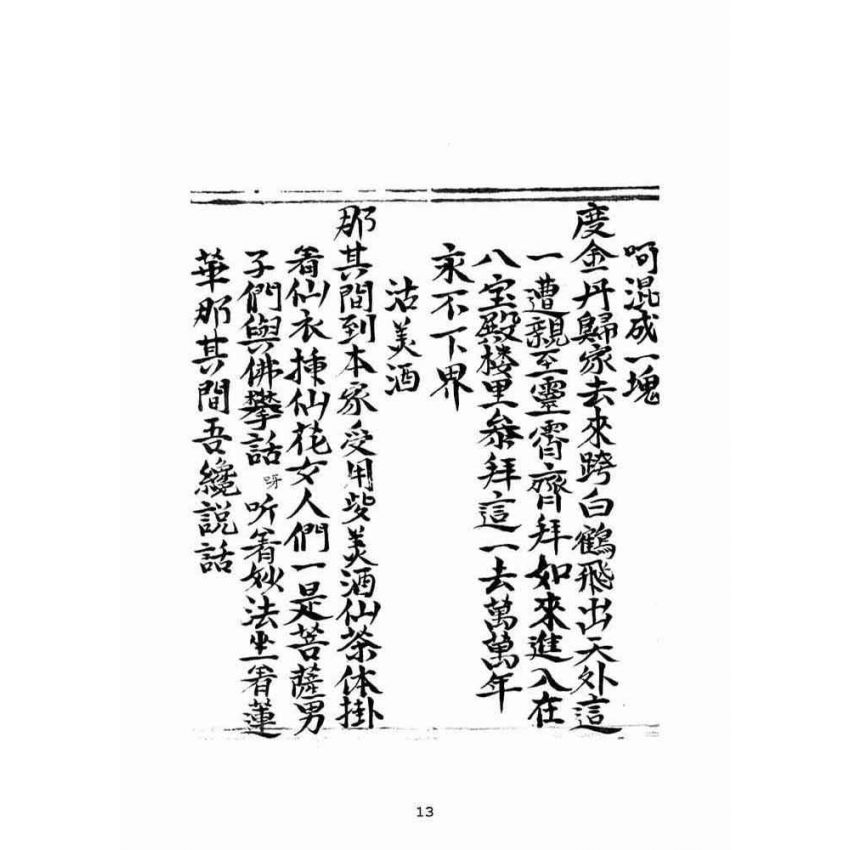 呵混成一塊
度金丹歸家去來跨白鶴飛出天外這
一遭親至靈霄齊拜如來進入在
八宝殿楼里叅拜這一去萬萬年
永不下界
沽美酒
那其間到本家受用些美酒仙茶体掛
着仙衣揷仙花女人們一是菩薩男
子們與佛攀話呀听着妙法坐着蓮
華那其間吾纔説話
13